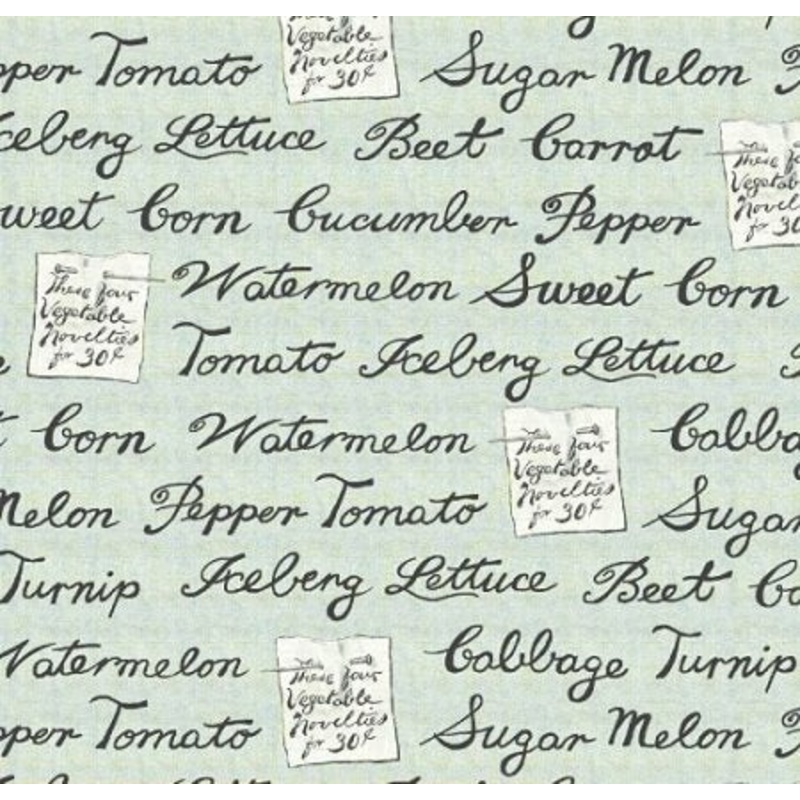 Vegetable
Novelties
for 30¢
pper Tomato
Sugar Melon
ceberg Lettuce Beet Carrot
These four
Vegetab
Novel
for 30
weet Corn Cucumber Pepper
These four
Vegetable
Novelties
for 30¢
Watermelon Sweet Corn
Tomato Iceberg Lettuce
t Corn Watermelon
These four
Vegetable
Novelties
for 30¢
Cabba
Melon Pepper Tomato
Sugar
Turnip Iceberg Lettuce Beet Ca
Watermelon
These four
Vegetable
Novelties
for 30¢
Cabbage Turnip
pper Tomato
Sugar Melon